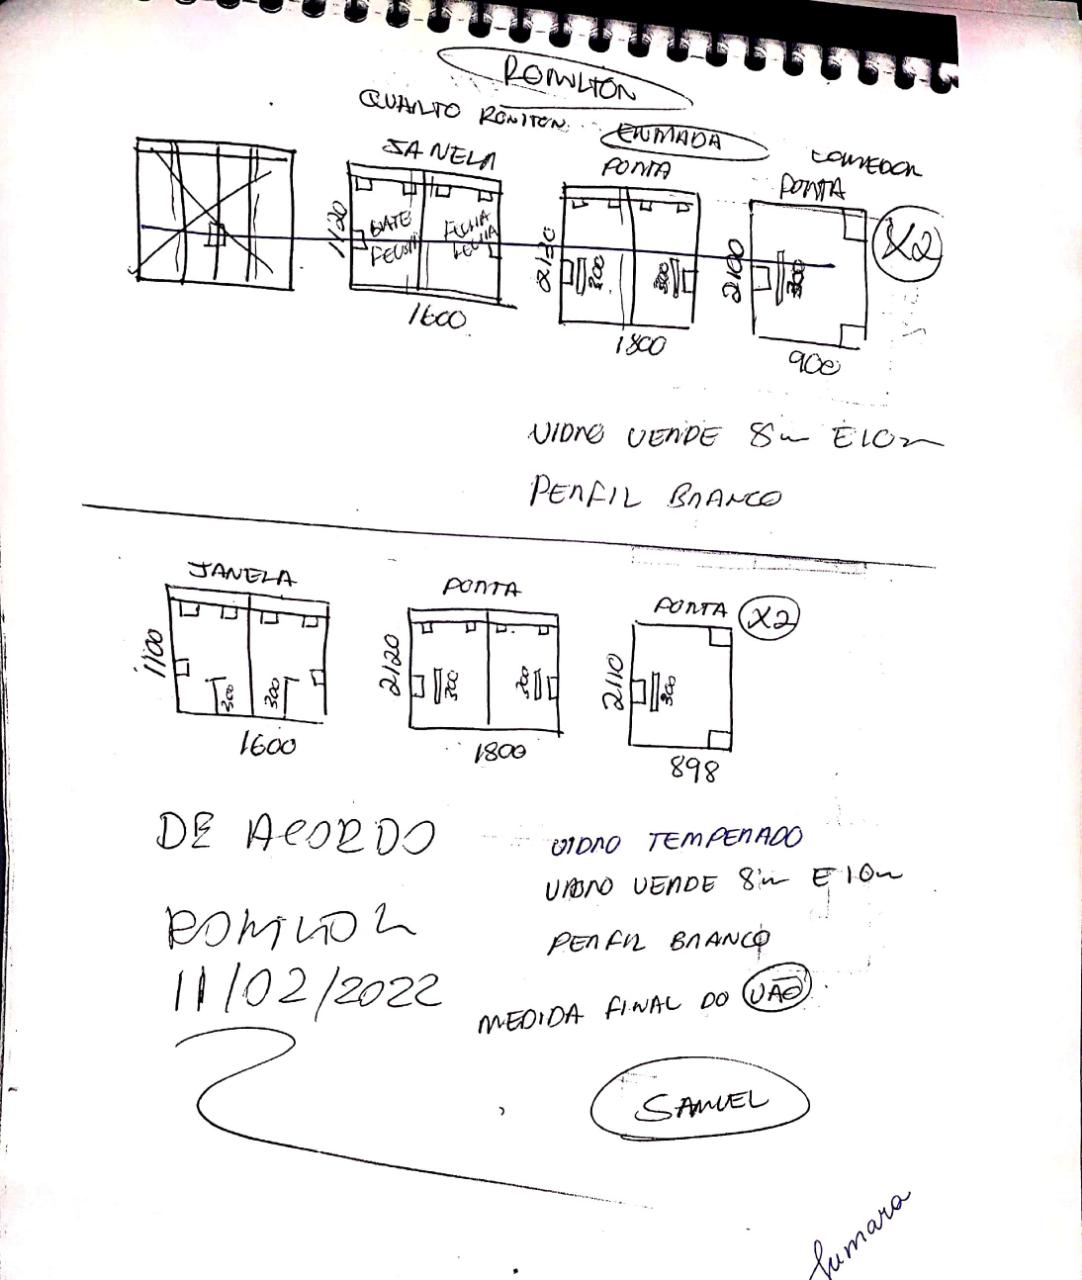 ROMILTON
QUARTO RONITON
ENTRADA
JANELA
PORTA
CORREDOR
PORTA
X2
1120
BATE
FECHA
FECHA
1600
2120
300
300
1800
2100
300
900
VIDRO VERDE 8m E 10m
PERFIL BRANCO
JANELA
PORTA
PORTA X2
1100
300
300
1600
2120
300
300
1800
2110
300
898
DE ACORDO
VIDRO TEMPERADO
VIDRO VERDE 8m E 10m
ROMILTON
PERFIL BRANCO
11/02/2022
MEDIDA FINAL DO VÃO
SAMUEL